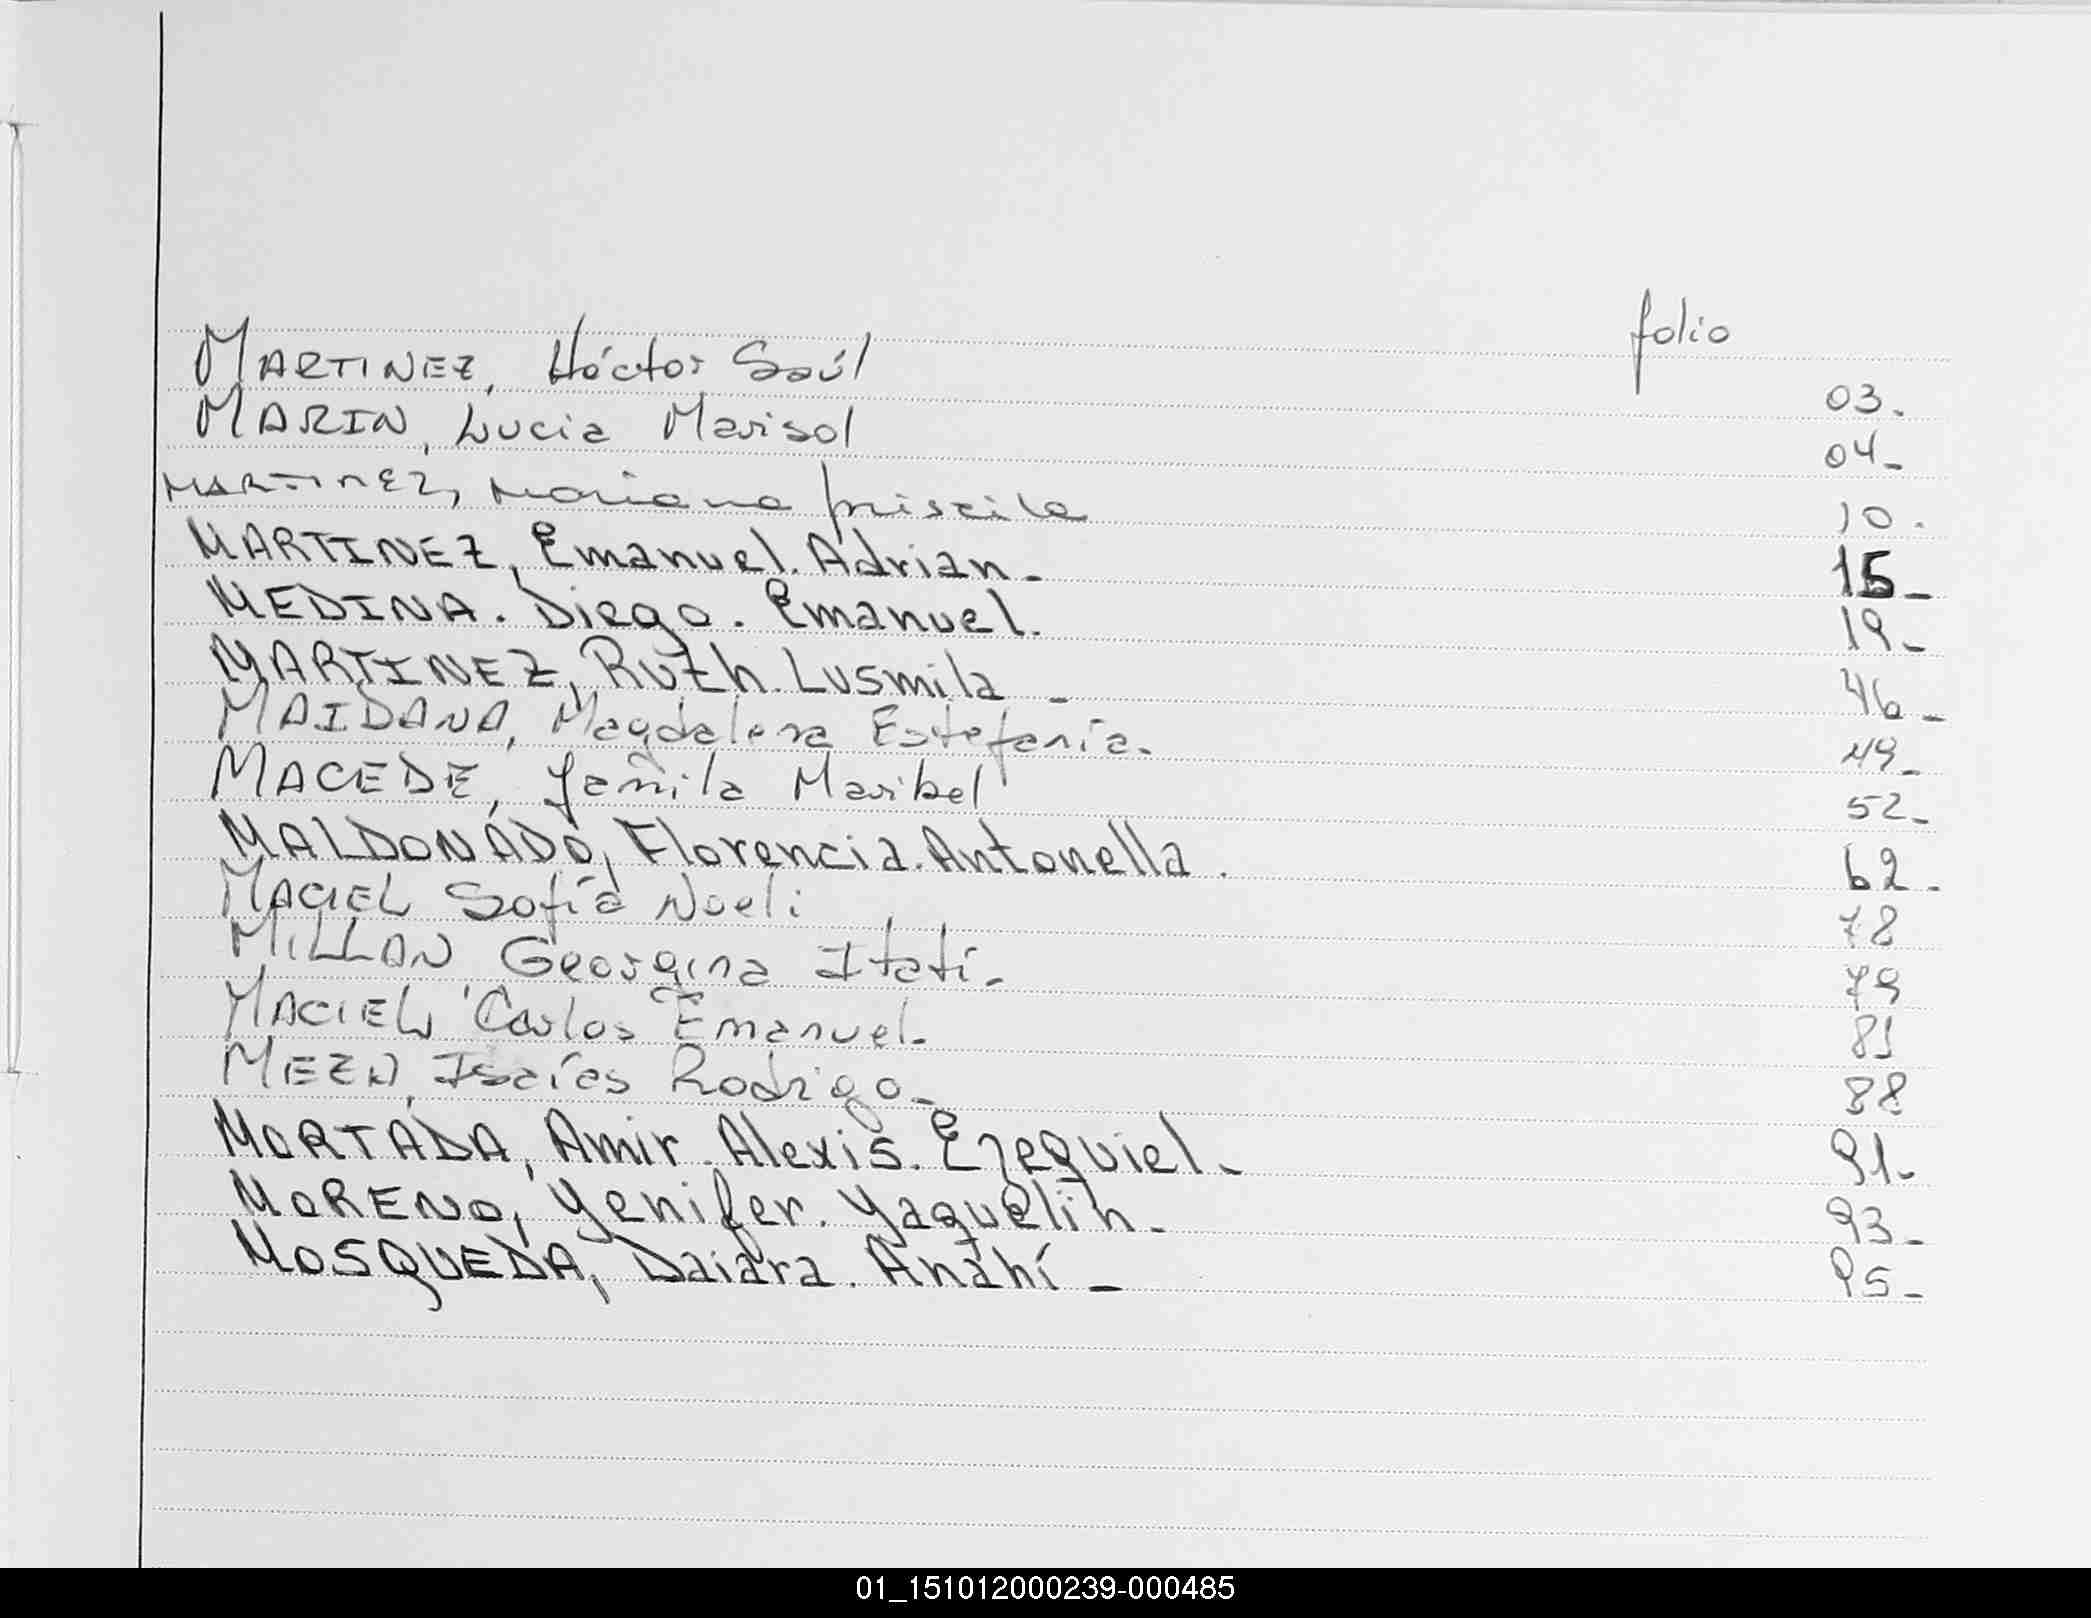 folio
MARTINEZ, Héctor Saúl 03.
MARIN, Lucia Marisol 04-
MARTINEZ, Mariana Priscila 10.
MARTINEZ, Emanuel. Adrian- 15-
MEDINA. Diego. Emanuel. 19-
MARTINEZ, Ruth. Lusmila - 46-
MAIDANA, Magdalena Estefanía. 49-
MACEDE, Jamila Maribel 52-
MALDONADO, Florencia. Antonella. 62.
MACIEL Sofía Noeli 78
MILLAN Georgina Itatí- 79
MACIEL, Carlos Emanuel- 81
MEZA, Isaías Rodrigo- 88
MORTADA, Amir. Alexis. Ezequiel- 91-
MORENO, Yenifer. Yaquelin- 93-
MOSQUEDA, Daiara. Anahí- 95-
01_151012000239-000485